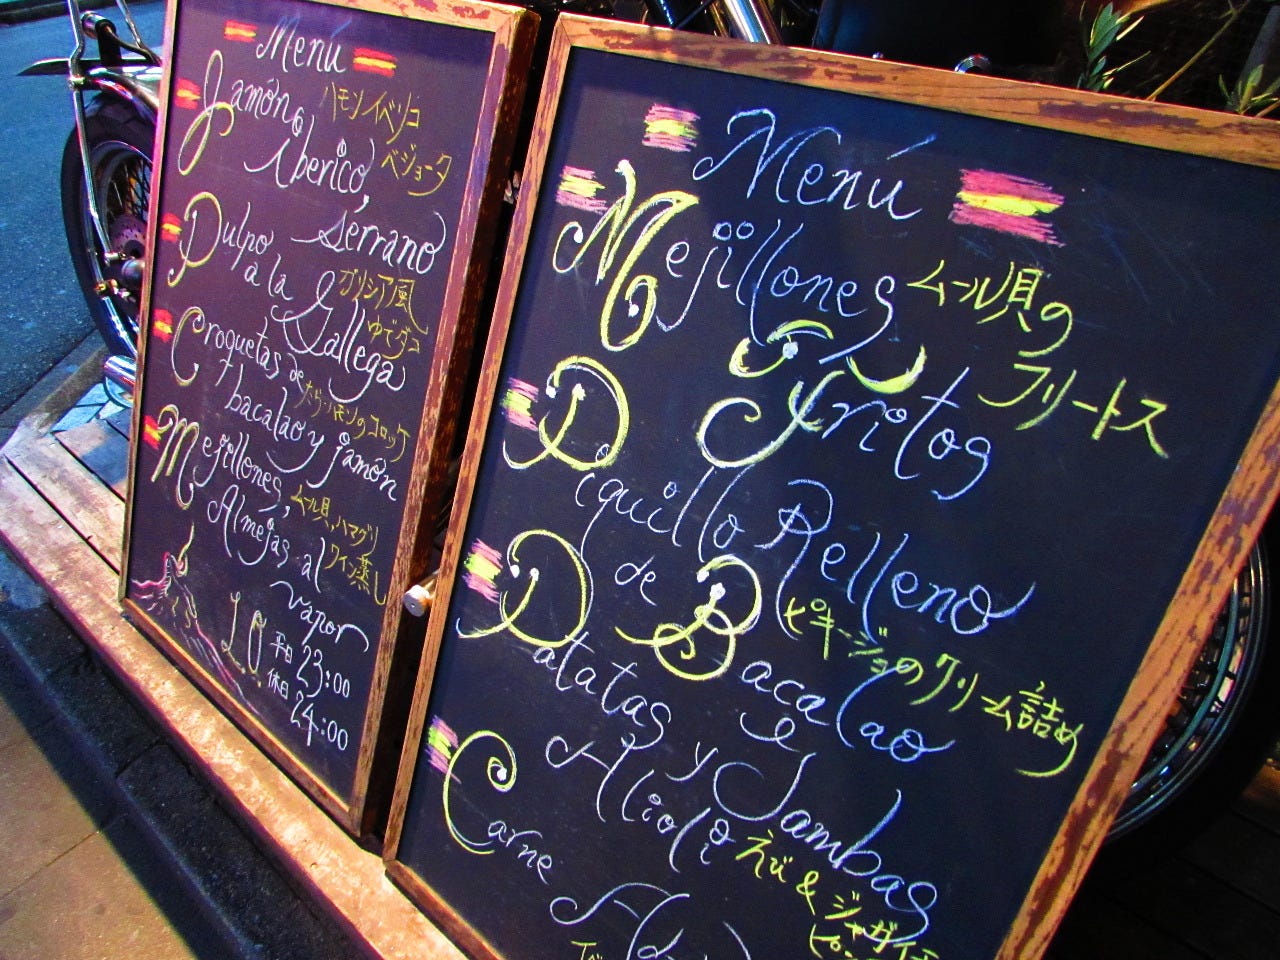 Menú
Jamón ハモンイベリコ
Iberico, ベジョータ
Serrano
Pulpo
a la ガリシア風
Gallega ゆでダコ
Croquetas de
bacalao y jamón
Mejillones, ムール貝,ハマグリ
Almejas al ワイン蒸し
vapor
L.O 平日 23:00
休日 24:00
Menú
Mejillones ムール貝の
Fritos フリートス
Piquillo Relleno
de Bacalao ピキージョのクリーム詰め
Patatas y Gambas
Alioli えび&ジャガイモ
Carne